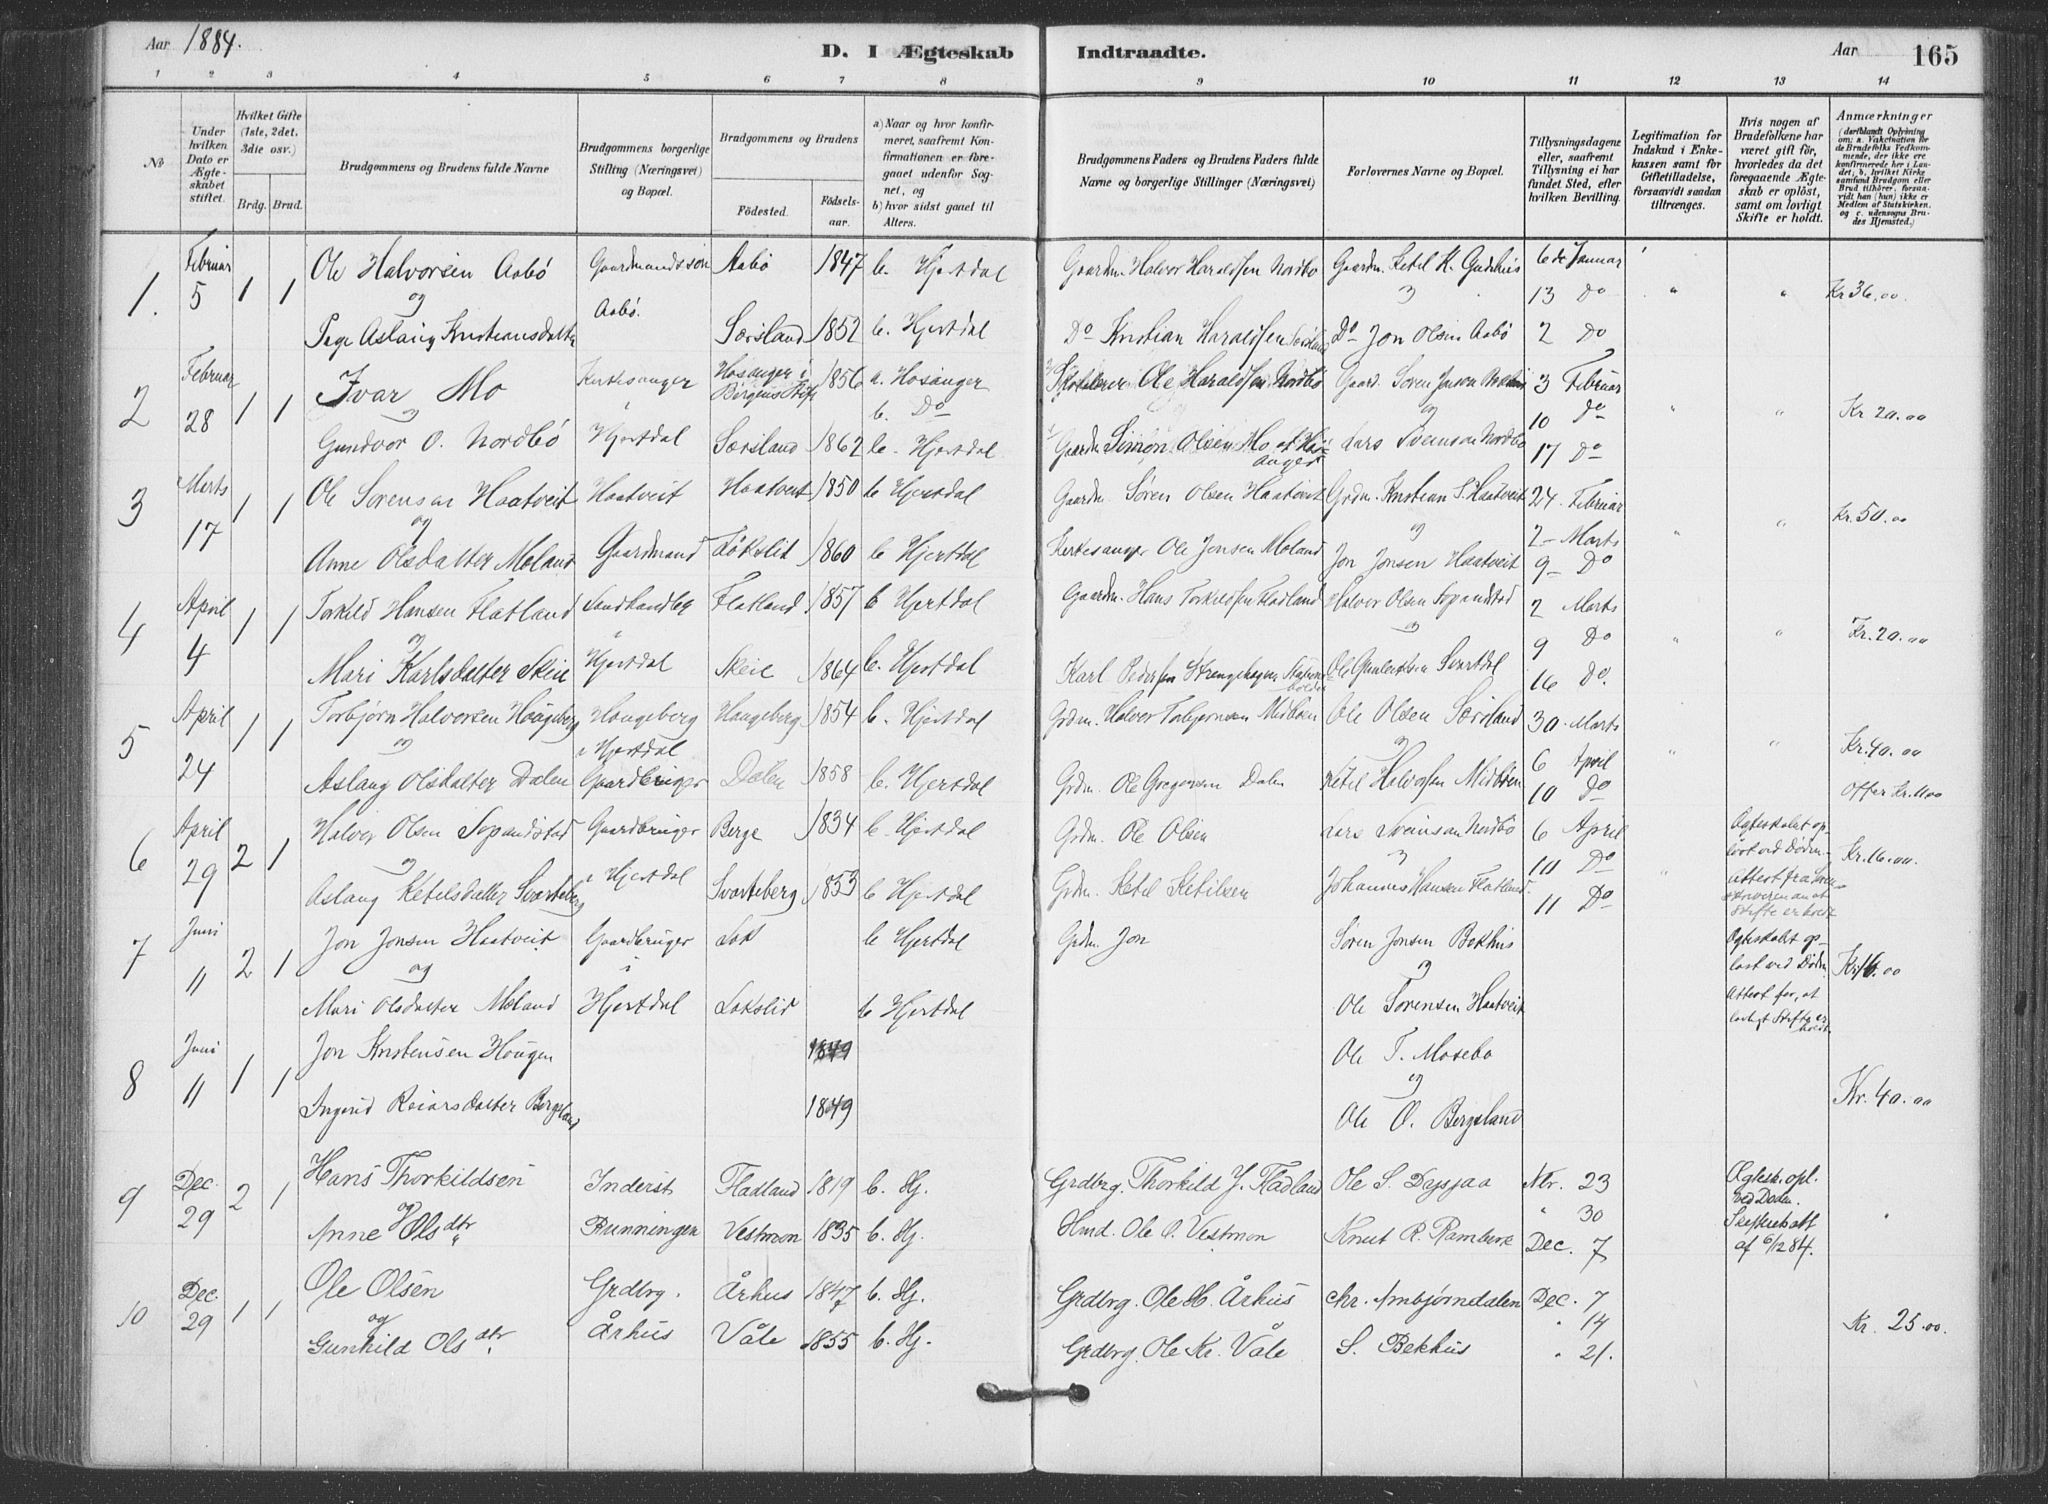 Aar 1884.
D. I Ægteskab Indtraadte.
Aar 165
1 2 3 4 5 6 7 8 9 10 11 12 13 14
No
Under hvilken Dato er Ægteskabet stiftet.
Hvilket Gifte (1ste, 2det, 3die osv.)
Brdg. Brud.
Brudgommens og Brudens fulde Navne
Brudgommens borgerlige Stilling (Næringsvei) og Bopæl.
Brudgommens og Brudens
Födested.
Födselsaar.
a) Naar og hvor konfirmeret, saafremt Konfirmationen er foregaaet udenfor Sognet, og
b) hvor sidst gaaet til Alters.
Brudgommens Faders og Brudens Faders fulde Navne og borgerlige Stillinger (Næringsvei)
Forlovernes Navne og Bopæl.
Tillysningsdagene eller, saafremt Tillysning ei har fundet Sted, efter hvilken Bevilling.
Legitimation for Indskud i Enkekassen samt for Giftetilladelse, forsaavidt saadan tiltrænges.
Hvis nogen af Brudefolkene har været gift før, hvorledes da det foregaaende Ægteskab er oplöst, samt om lovligt Skifte er holdt.
Anmærkninger
1. Februar 5 1 1 Ole Halvorsen Aabø Gaardmandssøn Aabø 1847 b. Hjertdal Gaardm. Halvor Haraldsen Nordbø Gaardm. Ketel K. Gudshus 6te Januar
og Aabø. 13 Do " " Kr 36.00
Aslaug Kristiansdatter Særsland 1852 b. Hjertdal Do Kristian Haraldsen Særsland Do Jon Olsen Aabø 2 Do
2 Februar 28 1 1 Ivar Mo Kirkesanger Hosanger i Bergens Stift 1856 a. Hosanger Ole Haraldsen Nordbø Gaard. Søren Jonsen 3 Februar
og i b. Do og 10 Do " " Kr 20.00
Gundvor O. Nordbø Hjertdal Særsland 1862 b. Hjertdal Gaardm Simon Olsen Mo af Hosanger Lars Sveinson Nordbø 17 Do
3 Marts 17 1 1 Ole Sørensen Haatveit Haatveit Haatveit 1850 b Hjertdal Gaardm. Søren Olsen Haatveit Grdm. Kristian S. Haatveit 24. Februar
og og 2 Marts " " Kr. 50.00
Anne Olsdatter Moland Gaardmand Løkslid 1860 b Hjertdal Kirkesanger Ole Jonsen Moland Jon Jonsen Haatveit 9 Do
4 April 4 1 1 Torkild Hansen Flatland Landhandler Flatland 1857 b Hjertdal Gaardm. Hans Torkildsen Fladland Halvor Olsen Sopandstad 2 Marts
og i og 9 Do " " Kr. 20.00
Mari Karlsdatter Skeie Hjertdal Skeie 1864 b. Hjertdal Karl Pedersen Strengehagen Ole Gunleiksen Svartdal 16 Do.
5 April 24 1 1 Torbjørn Halvorsen Hougeberg Hougeberg Haugeberg 1854 b. Hjertdal Grdm. Halvor Torbjørnsen Midbøen Ole Olsen Særsland 30. Marts
og i Hjertdal og 6 April " " Kr. 40.00
Aslaug Olsdatter Dalen Gaardbruger Dalen 1858 b. Hjertdal Grdm. Ole Gregorsen Dalen Ketil Halvorsen Midbøen 10 Do Offer Kr.
6 April 29 2 1 Halvor Olsen Sopandstad Gaardbruger Berge 1834 b. Hjertdal Grdm. Ole Olsen Lars Sveinson Nordbø 6 April Ægteskabet opløst ved Døden.
og i Hjertdal 10 Do " Kr. 16.00.
Aslaug Ketelsdatter Svarteberg Svarteberg 1853 b Hjertdal Grdm. Ketil Ketilsen Johannes Hansen Flatland 11 Do Attest fra at Skifte er holdt
7 Juni 11 2 1 Jon Jonsen Haatveit Gaardbruger b Hjertdal Grdm. Jon Søren Jonsen Bekhus Ægteskabet opløst ved Døden.
og i og Kr 16.00
Mari Olsdatter Moland Hjertdal Løkslid b Hjertdal Ole Sørensen Haatveit Attest for, at lovligt Skifte er holdt
8 Juni 11 1 1 Jon Kristensen Hougen 1849 Ole T. Mosebø
og Kr. 40.00
Ingerid Reiarsdatter Bergsland 1849 Ole O. Bergsland
9 Dec. 29 2 1 Hans Thorkildsen Inderst Fladland 1819 b. Hj. Grdbrg. Thorkild J. Fladland Ole S. Nbr. 23 Ægtesk. opl. ved Døden.
og " 30
Anne Olsdtr. Bunningen Vestmon 1835 b. Hj. Hmd. Ole O. Vestmon Knut R. Dec. 7 af 6/12 84. "
10 Dec. 29 1 1 Ole Olsen Grdbrg. Århus 1847 b. Hj. Grdbrg. Ole H. Århus Chr. Ambjørndalen Dec. 7
og " 14 Kr. 25.00.
Gunhild Olsdtr. Århus Våle 1855 b. Hj. Grdbrg. Ole Kr. Våle S. Bekhus " 21.